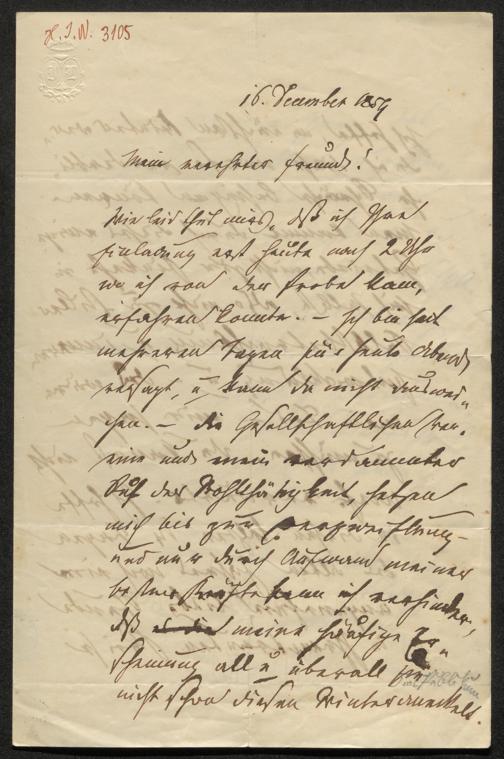 H. I. N. 3105
16. December 1859
Mein verehrter Freund!
Wie leid thut mirs, daß ich Ihre
Einladung erst heute nach 2 Uhr
wo ich von der Probe kam,
erfahren konnte. – Ich bin seit
mehreren Tagen für heute Abend
versagt, u kann da nicht auswei-
chen. – die Gesellschaftlichen Ver-
eine und mein verdammter
Ruf der Wohlthätigkeit, hetzen
mich bis zur Verzweiflung –
und nur durch Aufwand meiner
besten Kräfte kann ich verhindern,
daß meine häufige Er-
scheinung all u überall
nicht schon diesen Winter aneckelt.